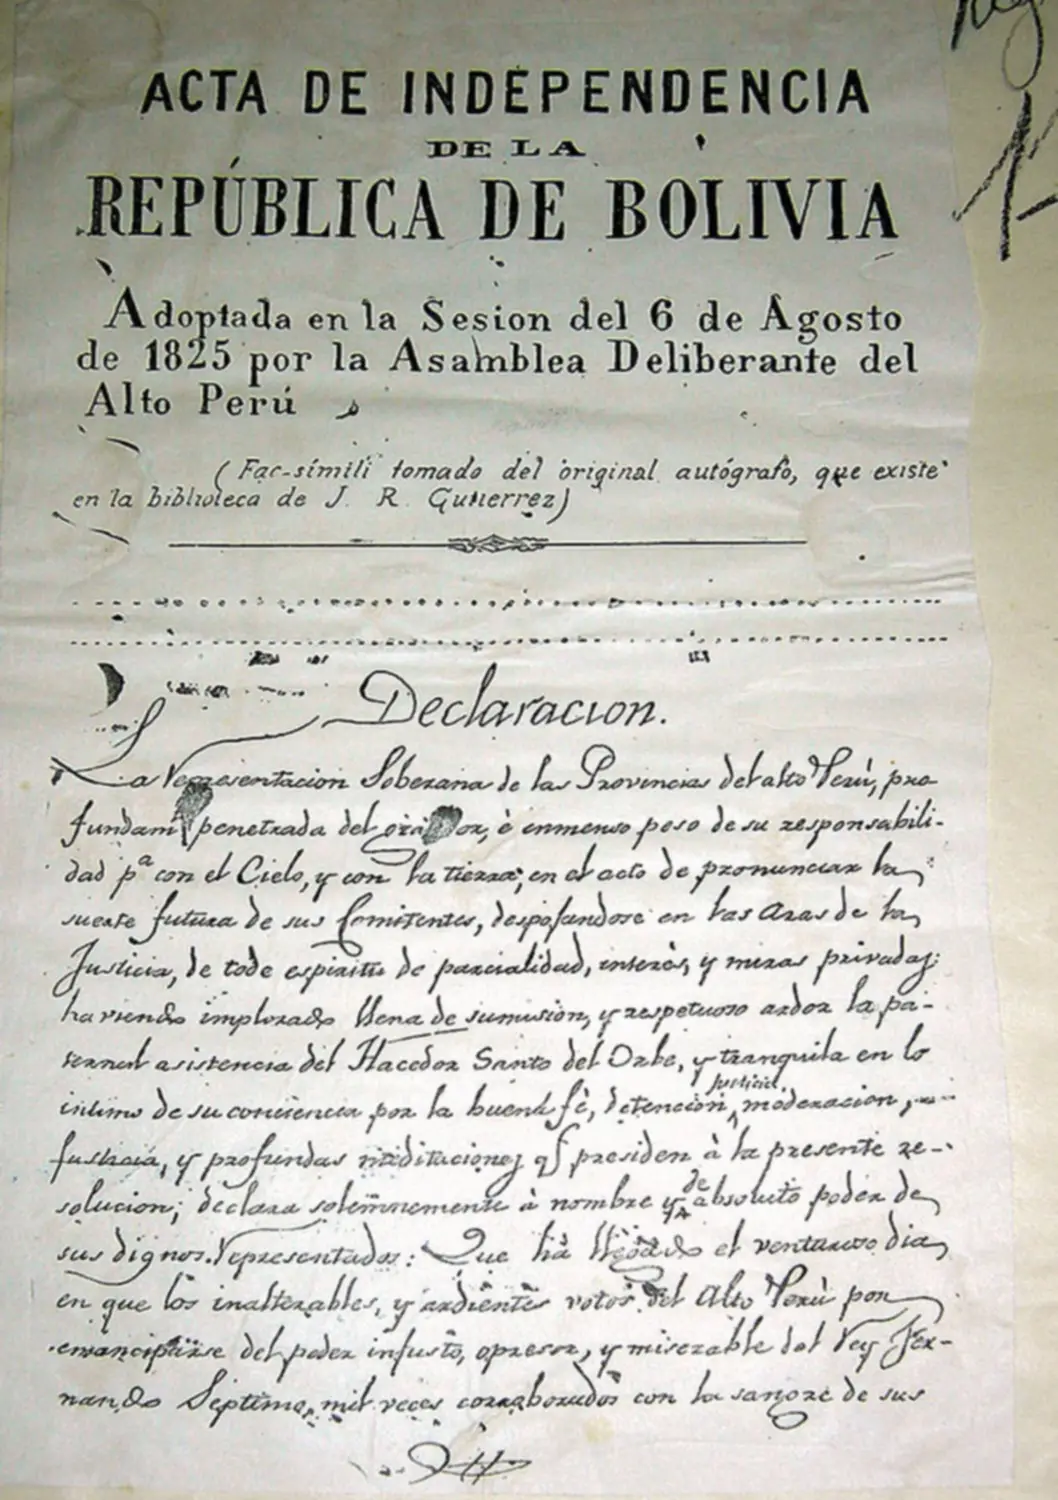 ACTA DE INDEPENDENCIA
DE LA
REPÚBLICA DE BOLIVIA
Adoptada en la Sesion del 6 de Agosto
de 1825 por la Asamblea Deliberante del
Alto Perú
(Fac-símili tomado del original autógrafo, que existe
en la biblioteca de J. R. Gutierrez)
Declaracion.
La Representacion Soberana de las Provincias del alto Perú, pro-
fundam penetrada del grandor, è enmenso peso de su responsabili-
dad pª con el Cielo, y con la tierra; en el acto de pronunciar la
suerte futura de sus Comitentes, despojandose en las Aras de la
Justicia, de todo espiritu de parcialidad, interès, y miras privadas;
haviendo implorado llena de sumision, y respetuoso ardor la pa-
ternal asistencia del Hacedor Santo del Orbe, y tranquila en lo
intimo de su conciencia por la buena fè, detencion, justicia, moderacion,
justicia, y profundas meditaciones q presiden à la presente re-
solucion; declara solemnemente à nombre y de absoluto poder de
sus dignos Representados: Que ha llegado el venturoso dia
en que los inalterables, y ardientes votos del Alto Perù por
emanciparse del poder injusto, opresor, y miserable del Rey Fer-
nando Septimo, mil veces corroborados con la sangre de sus